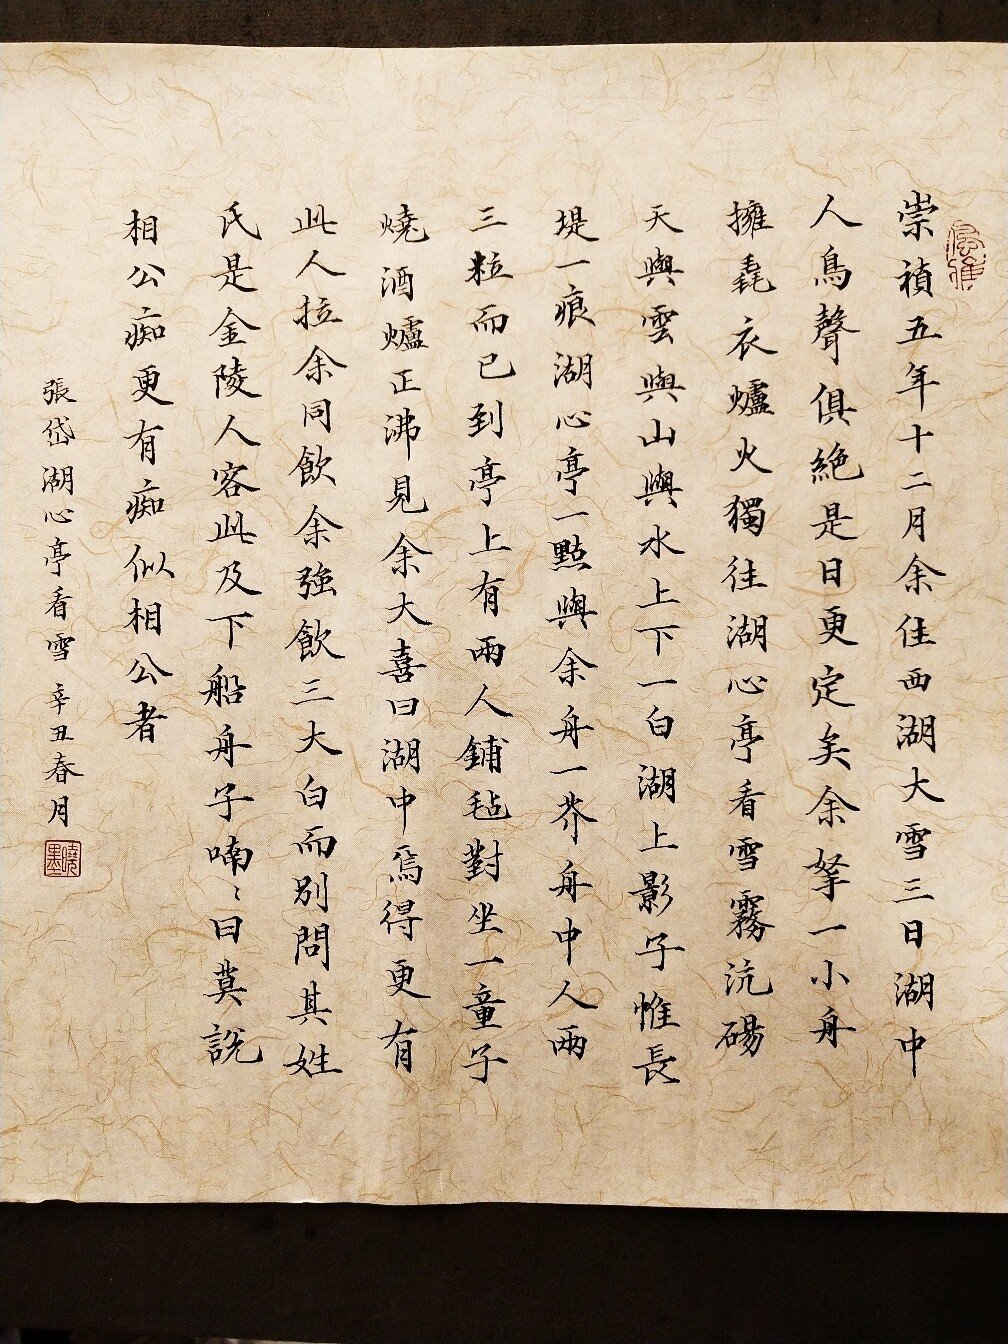 崇禎五年十二月余住西湖大雪三日湖中
人鳥聲俱絶是日更定矣余拏一小舟
擁毳衣爐火獨往湖心亭看雪霧沆碭
天與雲與山與水上下一白湖上影子惟長
堤一痕湖心亭一點與余舟一芥舟中人兩
三粒而已到亭上有兩人鋪毡對坐一童子
燒酒爐正沸見余大喜曰湖中焉得更有
此人拉余同飲余強飲三大白而別問其姓
氏是金陵人客此及下船舟子喃〻曰莫說
相公痴更有痴似相公者
張岱湖心亭看雪 辛丑春月
曉墨